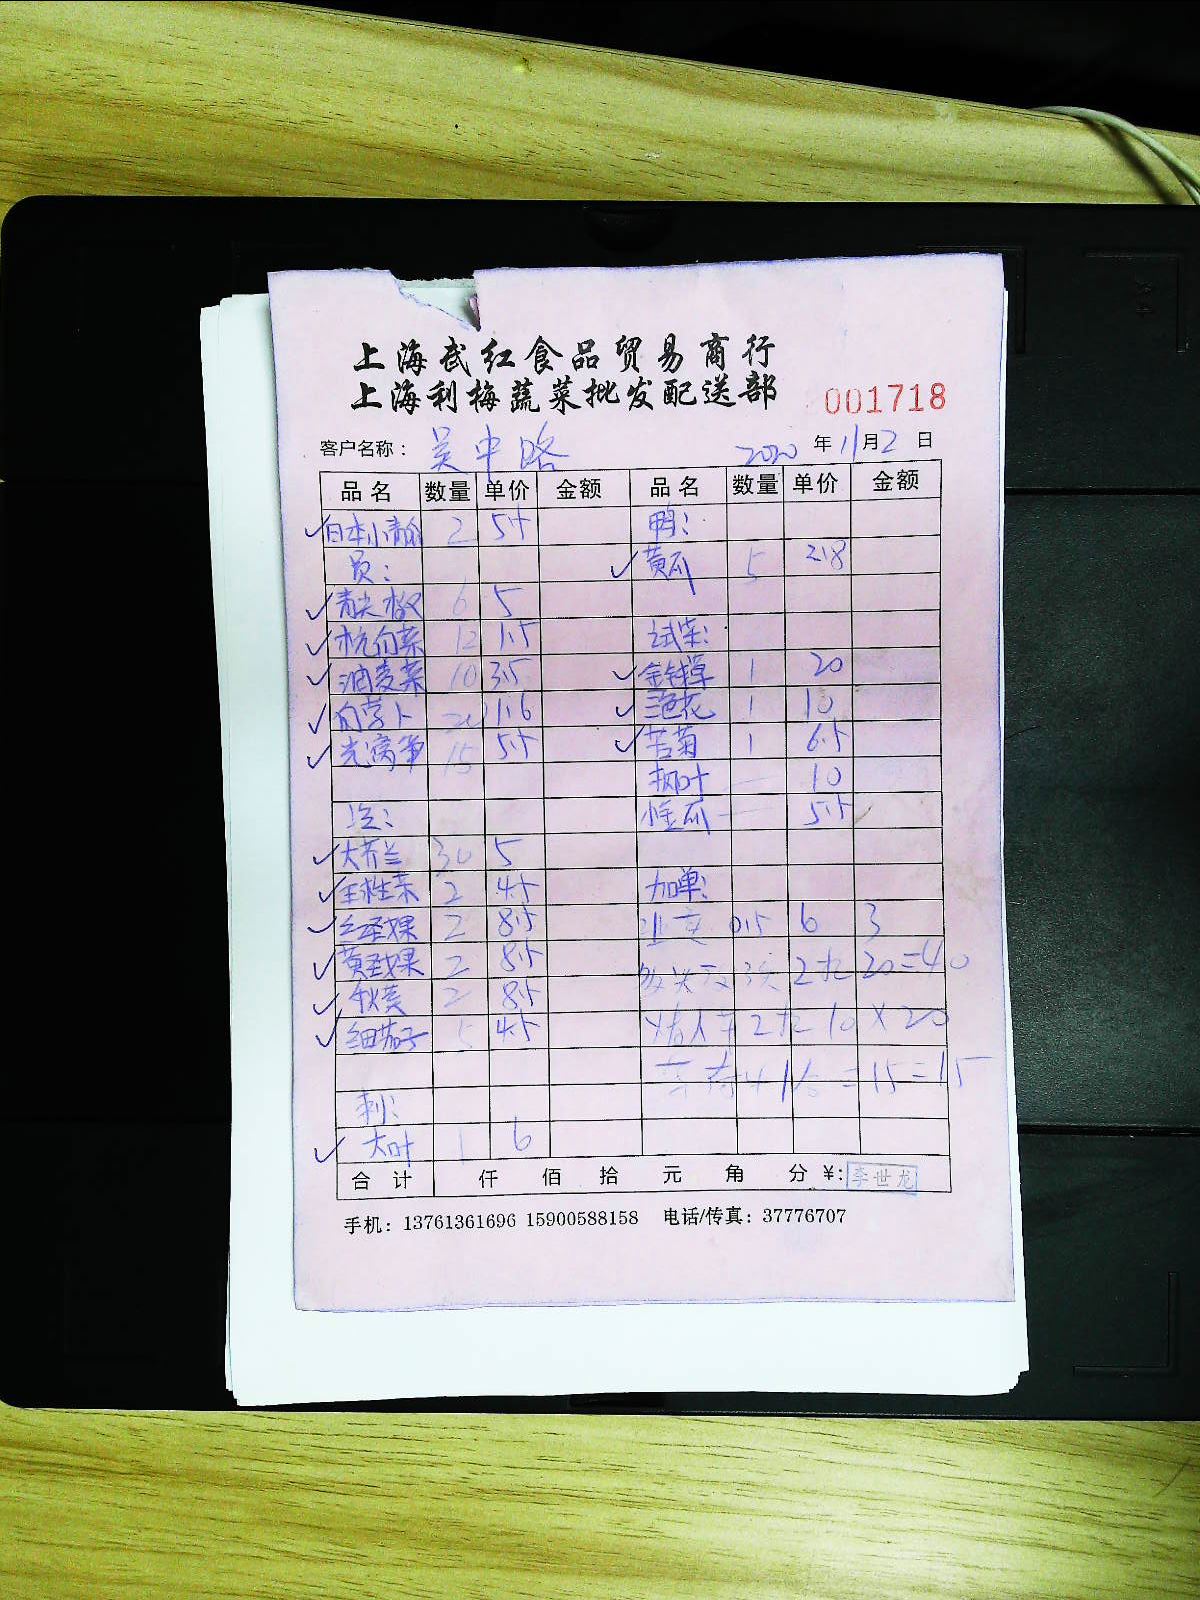 上海武红食品贸易商行
上海利梅蔬菜批发配送部
001718
客户名称: 吴中路 2020年11月2日
品名 数量 单价 金额 品名 数量 单价 金额
日本小青 2 5.5 鸭:
员: 黄瓜 5 2.8
青尖椒 6 5
杭白菜 12 1.5 试菜:
油麦菜 10 3.5 金钱草 1 20
白萝卜 1.6 三色花 1 10
光莴笋 15 5.5 苦菊 1 6.5
枫叶 — 10
— 5.5
大芥兰 30 5
2 4.5 加单:
红圣女果 2 8.5 0.5 6 3
黄圣女果 2 8.5 2 20=40
秋葵 2 8.5 2 10×20
细茄子 5 4.5 =15=15
刺:
大叶 1 6
合计 仟 佰 拾 元 角 分 ¥: 李世龙
手机: 13761361696 15900588158 电话/传真: 37776707